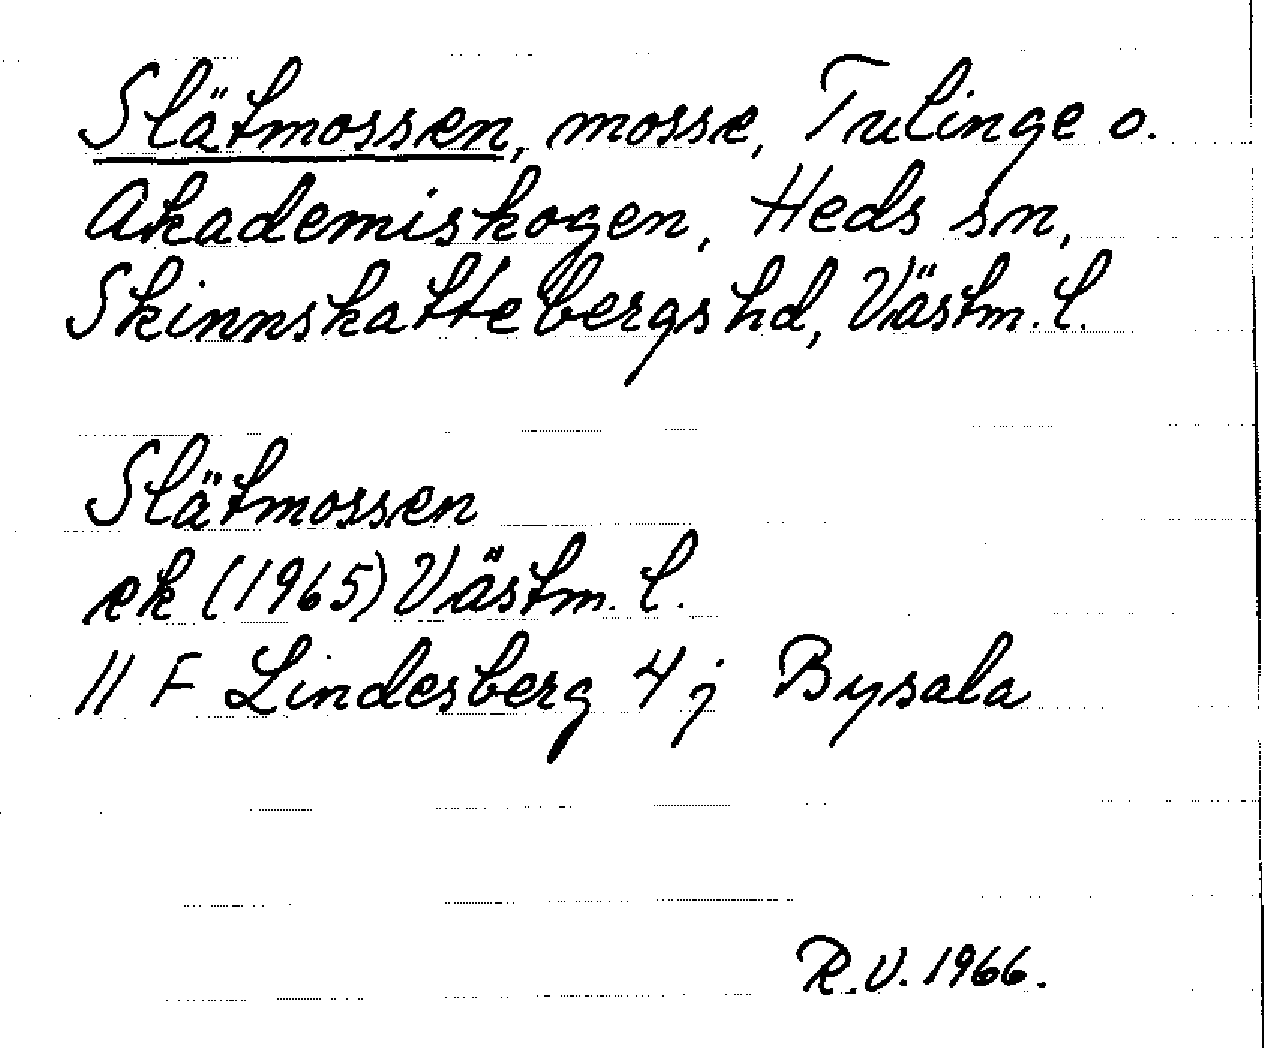 Slätmossen, mosse, Tulinge o.
Akademiskogen, Heds sn,
Skinnskattebergs hd, Västm. l.
Slätmossen
ek (1965) Västm. l.
11 F Lindesberg 4 j Bysala
R.V. 1966.